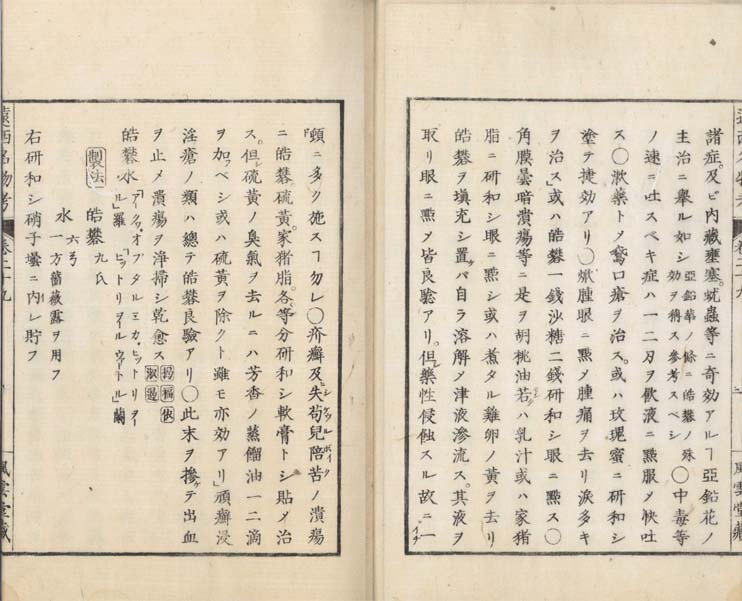 諸症。及ビ内藏壅塞。蚘蟲等ニ奇効アルヿ亞鉛花ノ
主治ニ舉ル如シ亞鉛華ノ條ニ皓礬ノ殊効ヲ稱ス參考スベシ〇中毒等
ノ速ニ吐スベキ症ハ一二刃ヲ飲液ニ㸃服〆快吐
ス〇漱藥トメ鵞口瘡ヲ治ス。或ハ玫瑰蜜ニ研和シ
塗テ捷効アリ〇焮腫眼ニ㸃〆腫痛ヲ去リ淚多キ
ヲ治ス或ハ皓礬一錢沙糖二錢研和シ眼ニ㸃ス〇
角膜曇暗潰瘍等ニ是ヲ胡桃油若ハ乳汁或ハ家猪
脂ニ研和シ眼ニ㸃シ或ハ煮タル雞卵ノ黃ヲ去リ
皓礬ヲ填充シ置ケバ自ラ溶解〆津液滲流ス。其液ヲ
取リ眼ニ㸃〆皆良驗アリ。但シ藥性侵蝕スル故ニ一
頓ニ多ク施スヿ勿レ〇疥癬及失苟兒陪苦ノ潰瘍
ニ皓礬硫黃。家猪脂。各等分研和シ軟膏トシ貼〆治
ス。但シ硫黃ノ臭氣ヲ去ルニハ芳香ノ蒸餾油一二滴
ヲ加ベシ或ハ硫黃ヲ除クト雖モ亦効アリ頑癬浸
淫瘡ノ類ハ總テ皓礬良驗アリ〇此末ヲ摻テ出血
ヲ止〆潰瘍ヲ淨掃シ乾愈ス
皓礬水
製法 皓礬 九氏
水 六弓
一方薔薇露ヲ用フ
右研和シ硝子壜ニ内レ貯フ
遠西名物考 卷二十九
風雲堂藏